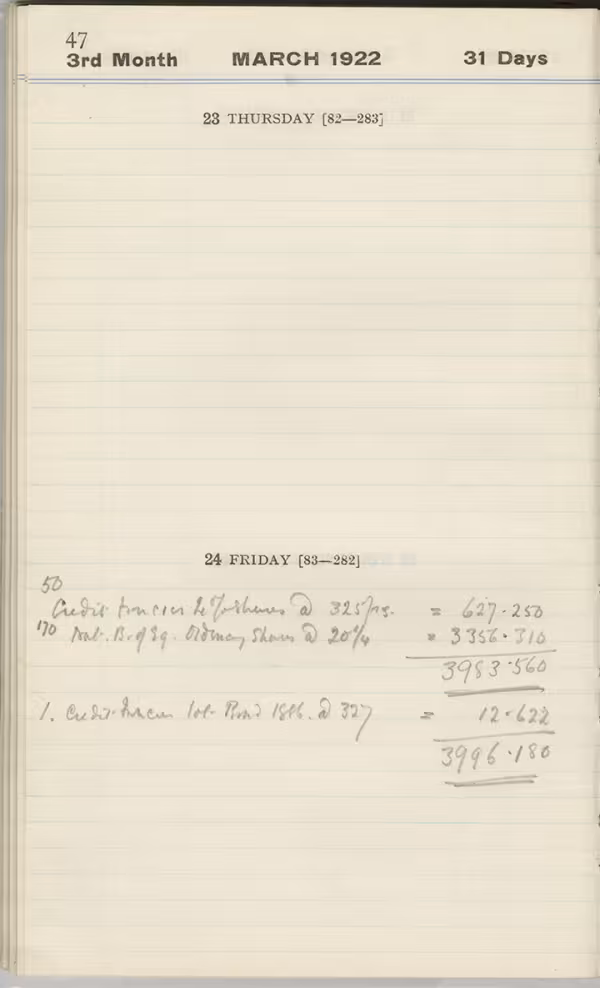 47
3rd Month MARCH 1922 31 Days
23 THURSDAY [82—283]
24 FRIDAY [83—282]
50
Credit Foncier Shares @ 325 frs. = 627.250
170 Nat. B. of Eg. Ordinary Shares @ 20¼ = 3356.310
3983.560
1. Credit Foncier Lot Bond 1886. @ 327 = 12.622
3996.180